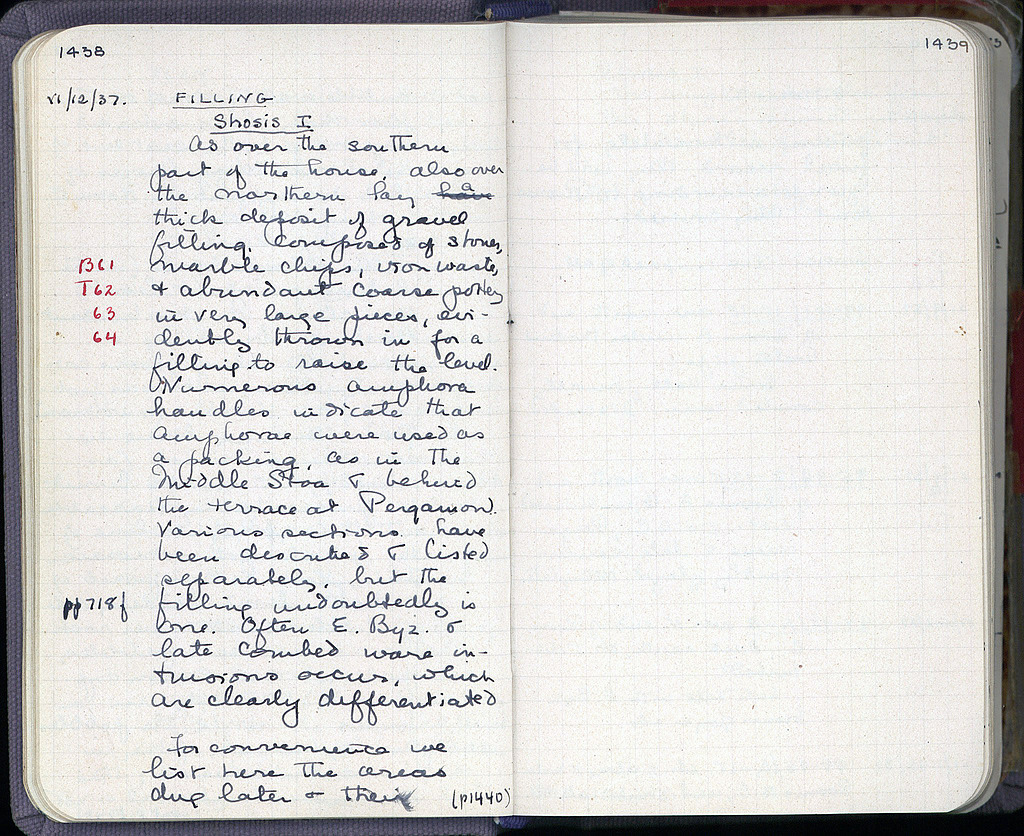 1438
1439
VI/12/37. FILLING
Shosis I
As over the southern
part of the house, also over
the northern lay have a
thick deposit of gravel
filling, composed of stones,
B61 marble chips, iron waste,
T62 & abundant coarse pottery
63 in very large pieces, evi-
64 dently thrown in for a
filling to raise the level.
(Numerous amphora
handles indicate that
amphorae were used as
a packing, as in the
Middle Stoa & behind
the terrace at Pergamon).
Various sections have
been described & listed
separately, but the
pp 718f filling undoubtedly is
one. Often E. Byz. &
late combed ware in-
trusions occur, which
are clearly differentiated
For convenience we
list here the areas
dug later & their (p1440)